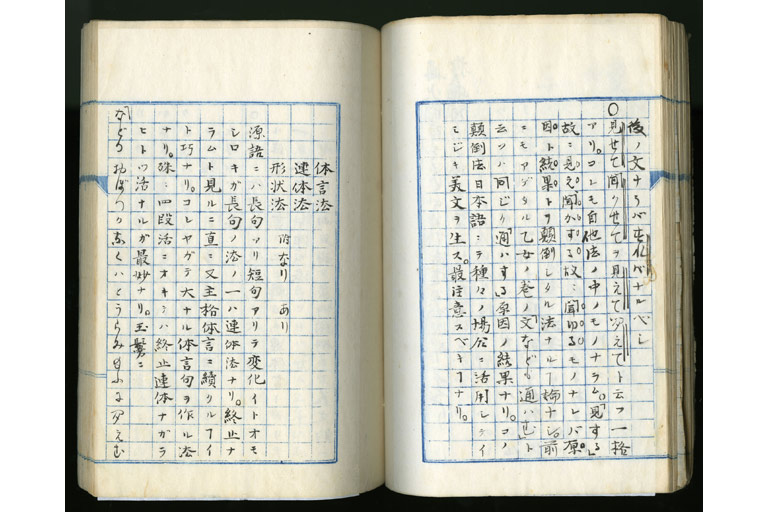 後ノ文ナラバ変化ベナルベシ
〇見せて聞かせてヲ見えて聞えてト云フ一格
アリ。コレモ自他法ノ中ノモノナラム。「見する」
故ニ見え、聞かする故ニ聞ゆるモノナレバ原
因ト結果トヲ顛倒シタル法ナルヿ論ナシ。前
ニモアゲタル乙女ノ巻ノ「文なども通ハむ」ト
云ツハ同じク「通ハする」原因ノ結果ナリ。コノ
顛倒法日本語ニテ種々ノ場合ニ活用シテイ
ミジキ美文ヲ生ス。最注意スベキヿナリ。
体言法
連体法
形状法 附なり あり
源語ニハ長句アリ短句アリテ変化イトオモ
シロキガ長句ノ法ノ一ハ連体法ナリ。終止ナ
ラムト見ルニ直ニ又主格体言ニ續クルヿイ
ト巧ナリ。コレヤガテ大ナル体言句ヲ作ル法
ナリ。殊ニ四段活ニオキテハ終止連体ナガラ
ヒトツ活ナルガ最妙ナリ。玉鬘ニ